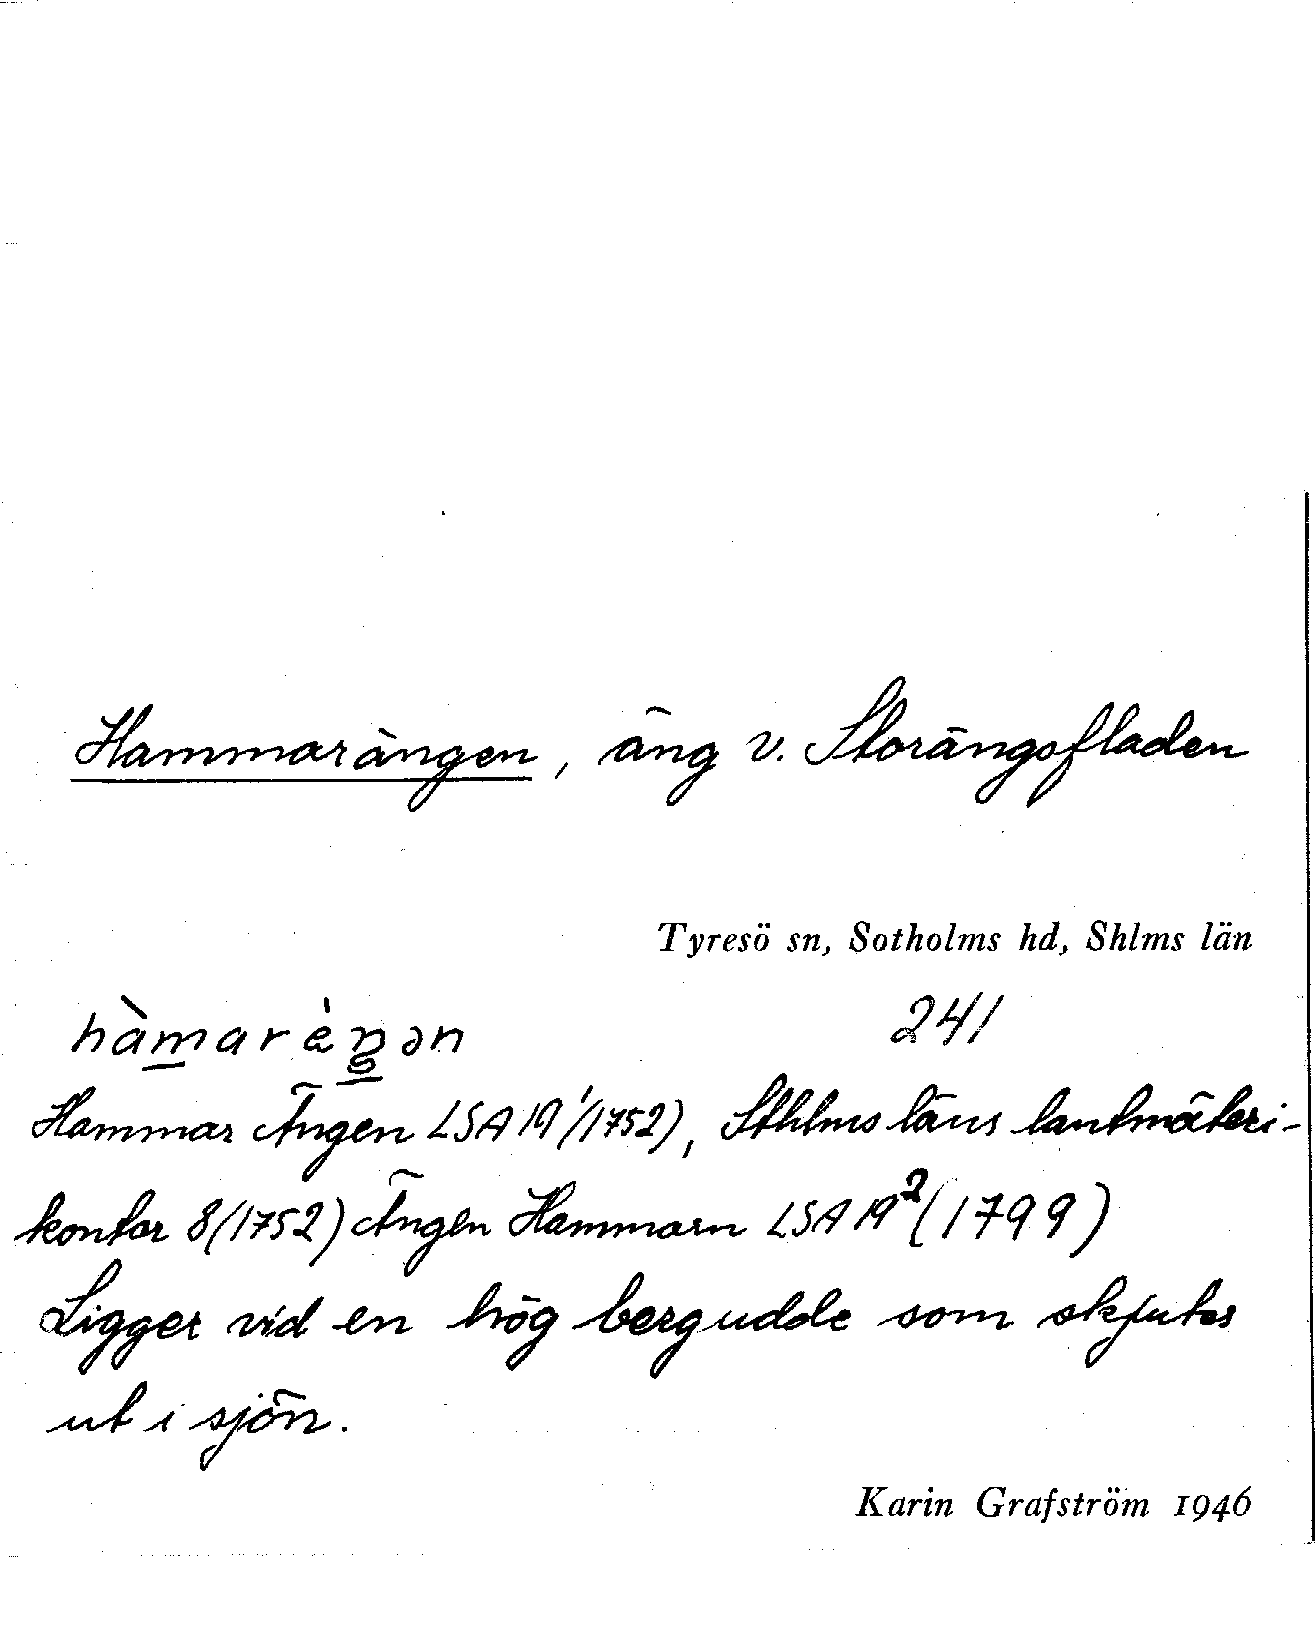 Hammarängen, äng v. Storängsfladen
Tyresö sn, Sotholms hd, Shlms län
hàmarèŋən 241
Hammar Ängen LSA 19¹/1752), Sthlms läns lantmäteri-
kontor 8(1752) Ängen Hammarn LSA 19²(1799)
Ligger vid en hög bergudde som skjuter
ut i sjön.
Karin Grafström 1946